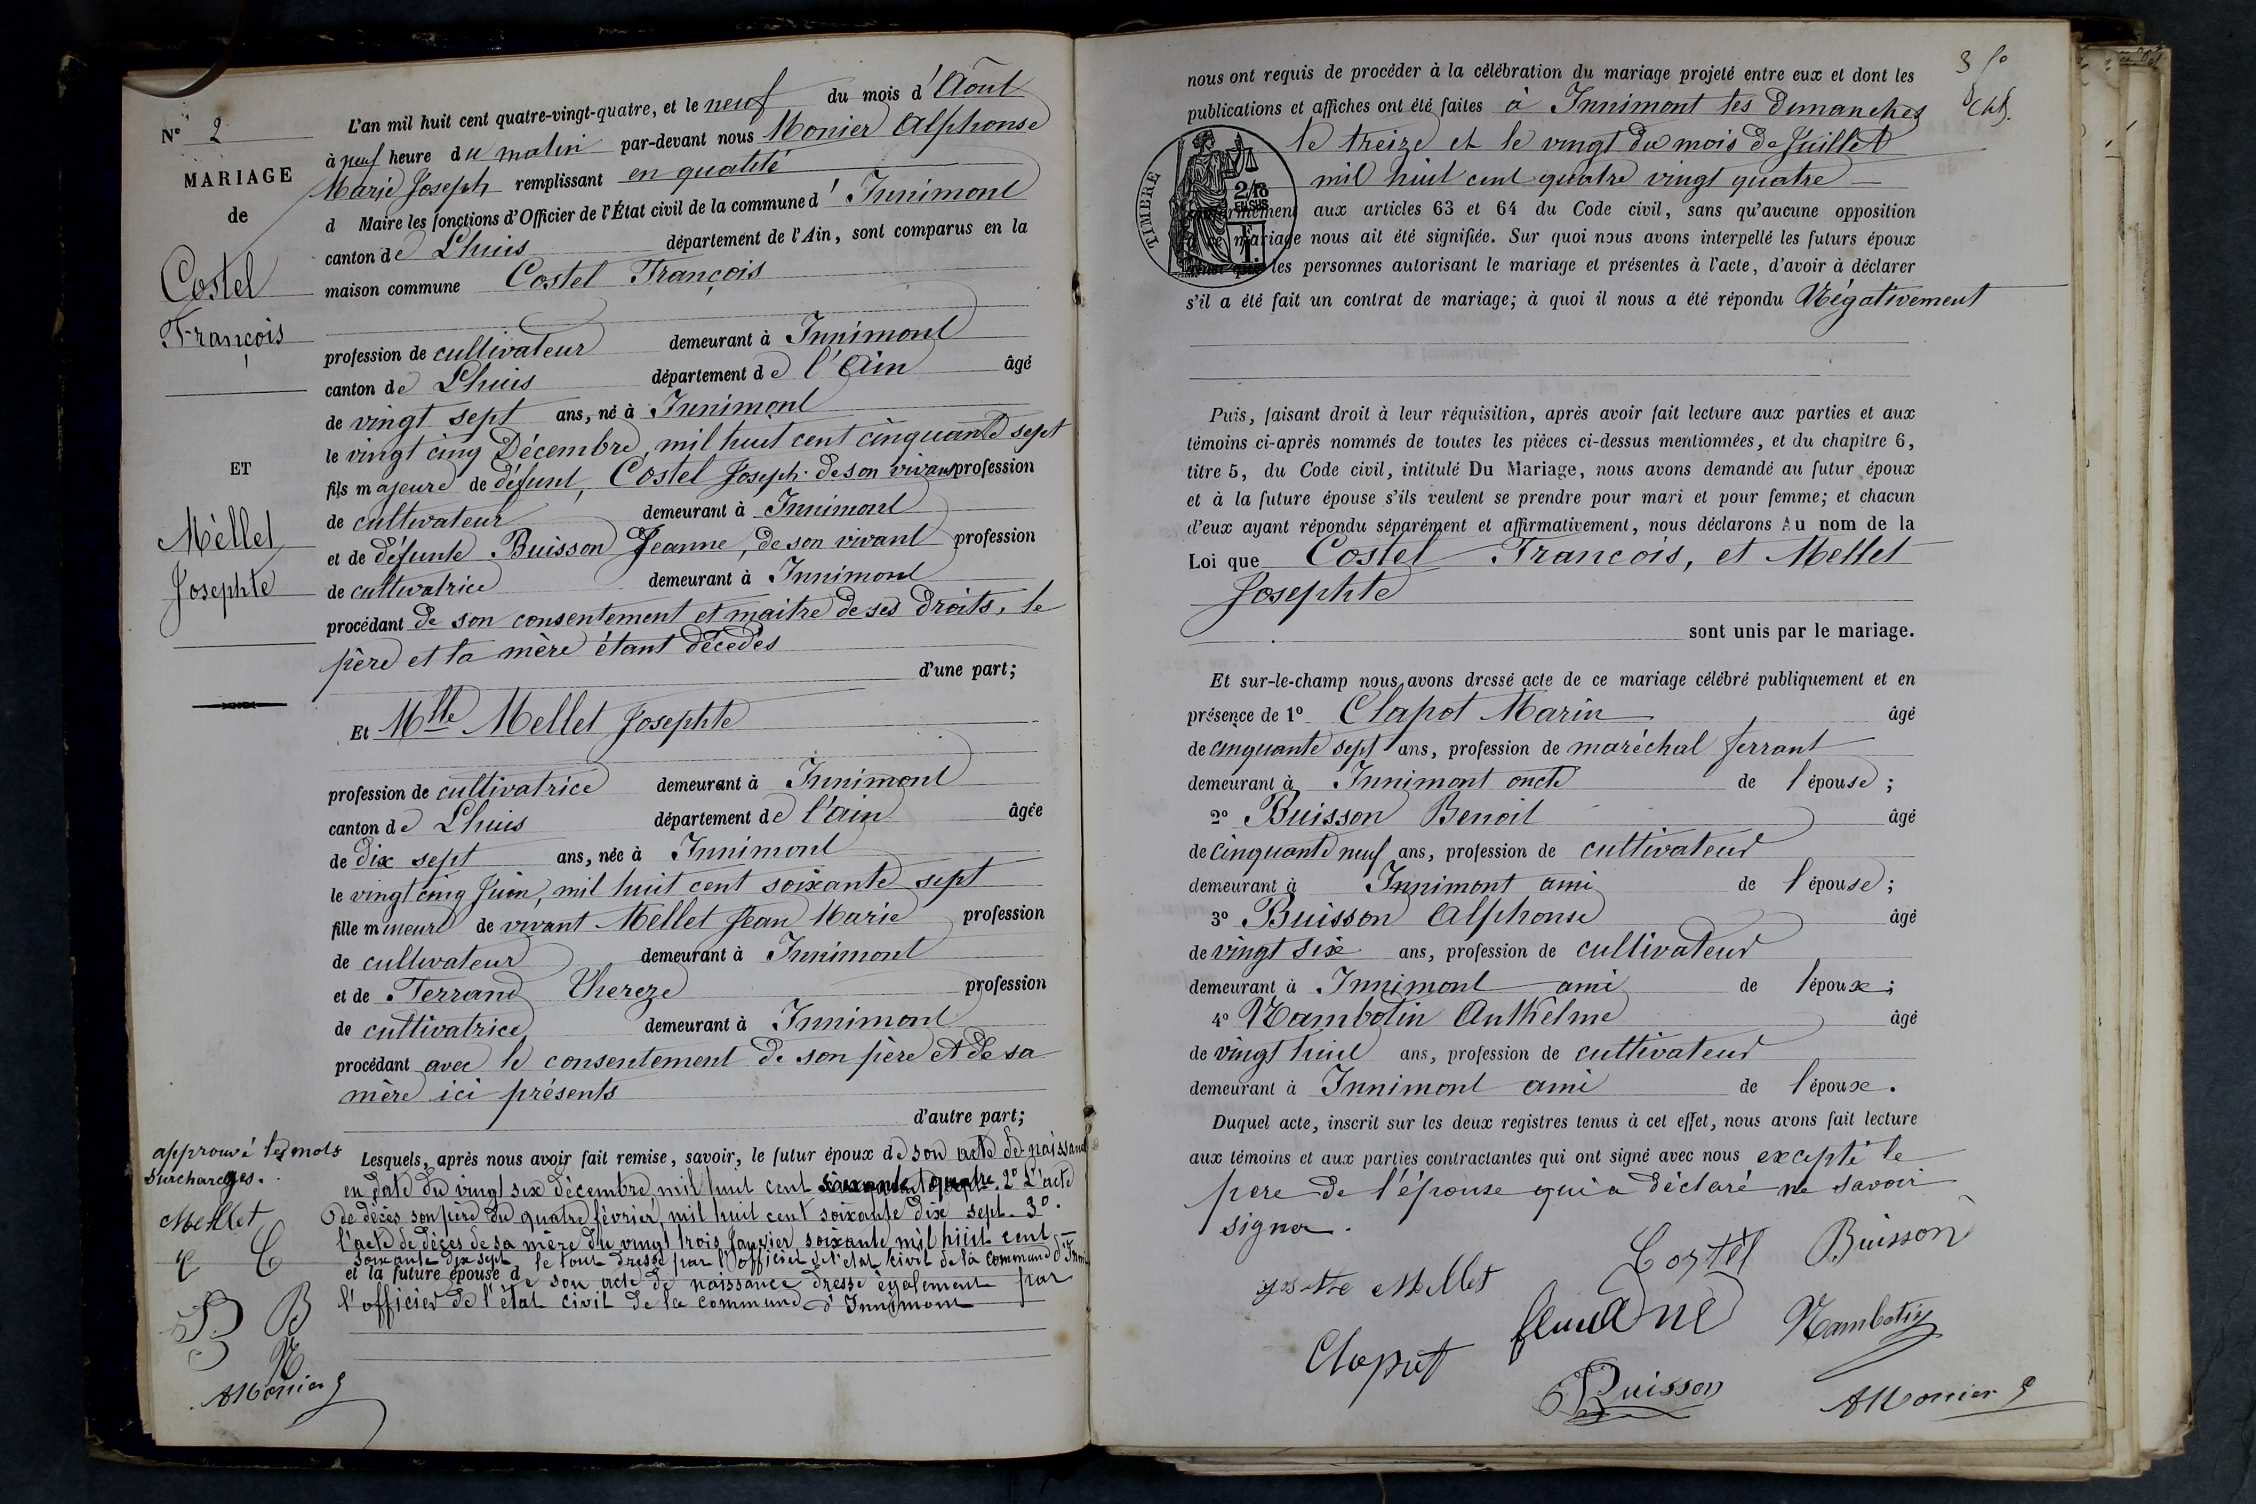 N° 2
MARIAGE
de
Costel
François
ET
Mèllet
Josephte
L'an mil huit cent quatre-vingt-quatre, et le neuf du mois d'Août
à neuf heure du matin par-devant nous Monier Alphonse
Marie Joseph remplissant en qualité
d Maire les fonctions d'Officier de l'État civil de la commune d'Innimont
canton de Lhuis département de l'Ain, sont comparus en la
maison commune Costel François
profession de cultivateur demeurant à Innimont
canton de Lhuis département de l'Ain âgé
de vingt sept ans, né à Innimont
le vingt cinq Décembre, mil huit cent cinquante sept
fils majeure de défunt, Costel Joseph. de son vivant profession
de cultivateur demeurant à Innimont
et de défunte Buisson Jeanne, de son vivant profession
de cultivatrice demeurant à Innimont
procédant de son consentement et maitre de ses droits, le
père et la mère étant décédés
d'une part;
Et Mlle Mellet Josephte
profession de cultivatrice demeurant à Innimont
canton de Lhuis département de l'ain âgée
de dix sept ans, née à Innimont
le vingt cinq Juin, mil huit cent soixante sept
fille mineure de vivant Mellet Jean Marie profession
de cultivateur demeurant à Innimont
et de Ferrand Thereze profession
de cultivatrice demeurant à Innimont
procédant avec le consentement de son père et de sa
mère ici présents
d'autre part;
Lesquels, après nous avoir fait remise, savoir, le futur époux de son acte de naissance
en date du vingt six décembre, mil huit cent 2° L'acte
de décès son père du quatre février, mil huit cent soixante dix sept. 3°.
l'acte de décès de sa mère du vingt trois Janvier soixante mil huit cent
soixante dix sept le tout dressé par l'officier de l'état civil de la commune d'
et la future épouse de son acte de naissance dressé également par
l'officier de l'état civil de la commune d'Innimont
approuvé les mots
surchargés.
Mellet
C
B B
N
AMonier
3 f°
nous ont requis de procéder à la célébration du mariage projeté entre eux et dont les
publications et affiches ont été faites à Innimont les dimanches
le treize et le vingt du mois de Juillet
mil huit cent quatre vingt quatre
TIMBRE
2/10
EN SUS
1F.
aux articles 63 et 64 du Code civil, sans qu'aucune opposition
mariage nous ait été signifiée. Sur quoi nous avons interpellé les futurs époux
les personnes autorisant le mariage et présentes à l'acte, d'avoir à déclarer
s'il a été fait un contrat de mariage; à quoi il nous a été répondu Négativement
Puis, faisant droit à leur réquisition, après avoir fait lecture aux parties et aux
témoins ci-après nommés de toutes les pièces ci-dessus mentionnées, et du chapitre 6,
titre 5, du Code civil, intitulé Du Mariage, nous avons demandé au futur époux
et à la future épouse s'ils veulent se prendre pour mari et pour femme; et chacun
d'eux ayant répondu séparément et affirmativement, nous déclarons Au nom de la
Loi que Costel Francois, et Mellet
Josephte
sont unis par le mariage.
Et sur-le-champ nous avons dressé acte de ce mariage célébré publiquement et en
présence de 1° Clapot Marin âgé
de cinquante sept ans, profession de maréchal ferrant
demeurant à Innimont oncle de l'épouse;
2° Buisson Benoit âgé
de cinquante neuf ans, profession de cultivateur
demeurant à Innimont ami de l'épouse;
3° Buisson Alphonse âgé
de vingt six ans, profession de cultivateur
demeurant à Innimont ami de l'époux;
4° Nambotin Anthelme âgé
de vingt huit ans, profession de cultivateur
demeurant à Innimont ami de l'époux.
Duquel acte, inscrit sur les deux registres tenus à cet effet, nous avons fait lecture
aux témoins et aux parties contractantes qui ont signé avec nous excepté le
pere de l'épouse qui a déclaré ne savoir
signer.
Costel Buisson
Mellet
Nambotin
Clapot
Buisson
AMonier